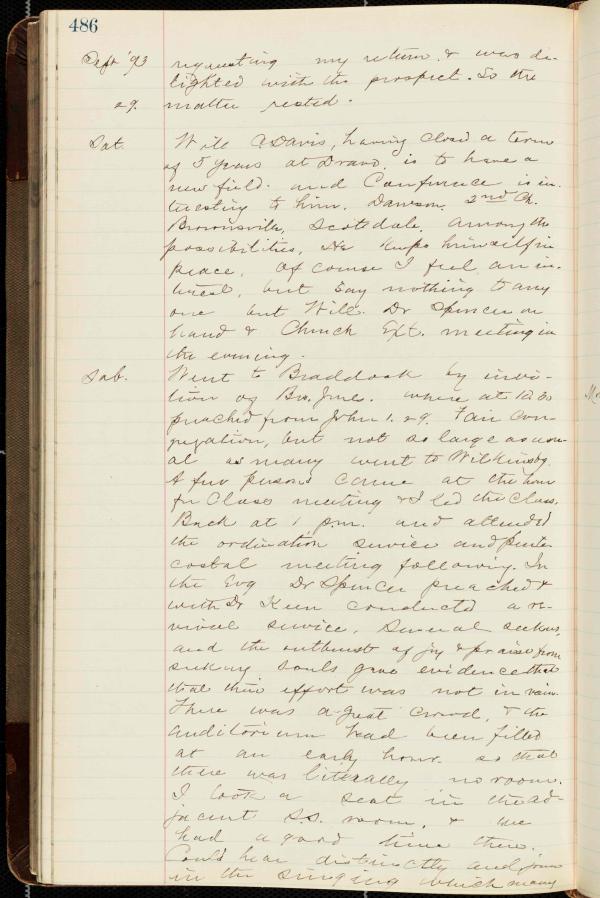 486
Sept '93 requesting my return, & was de-
lighted with the prospect. So the
29. matter rested.
Sat. Will C Davis, having closed a term
of 5 years at Dravo, is to have a
new field. and Conference is in-
teresting to him. Dawson, 2nd Ch.
Brownsville, Scotsdale, among the
possibilities, He keeps himself in
peace. Of course I feel an in-
terest, but say nothing to any
one but Will. Dr Spencer on
hand & Church Ext. meeting in
the evening.
Sab. Went to Braddock by invi-
tation of Bro. where at 10.30
preached from John 1. 29. Fair con-
gregation, but not so large as usu-
al as many went to Wilkinsbg.
A few persons came at the hour
for Class meeting & I led the Class.
Back at 1 pm. and attended
the ordination service and pente-
costal meeting following. In
the Evg Dr Spencer preached &
with Dr Keen conducted a re-
vival service. Several seekers,
and the outburst of joy & praise from
seeking souls gave evidence that
that their effort was not in vain.
There was a great crowd, & the
auditorium had been filled
at an early hour. so that
there was literally no room.
I took a seat in the ad-
jacent S.S. room, & we
had a good time there.
Could hear distinctly and join
in the singing which many